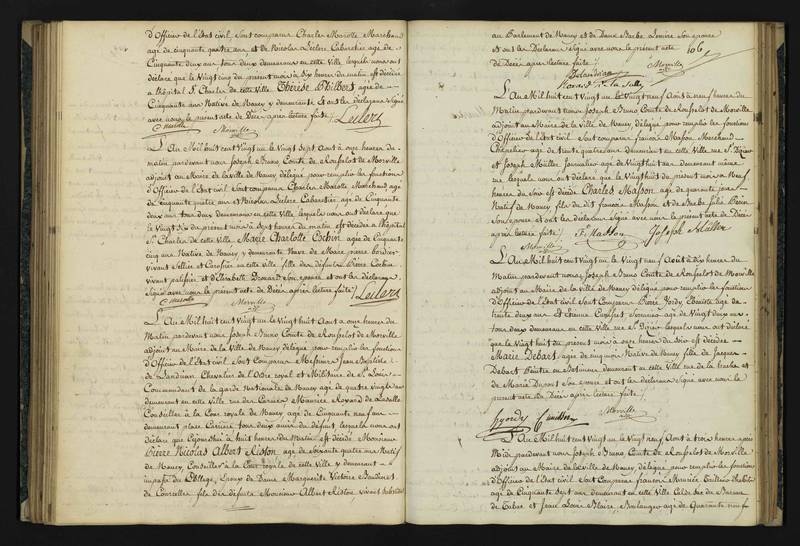 d'Officier de l'Etat civil, sont comparus Charles Marotte Marchand
agé de cinquante quatre ans, et de Nicolas Leclerc Cabaretier agé de
Cinquante deux ans tous deux demeurans en cette Ville, lesquels nous ont
déclaré que le Vingt cinq du présent mois à dix heures du matin est décédée
à l'hôpital St. Charles de cette Ville Thérèse Philbert agée de
Cinquante ans Native de Nancy y demeurante et ont les déclarans signé
avec nous le présent acte de Décès après lecture faite
Leclerc
Morville
L'An Mil huit cent Vingt un le Vingt sept Aout à onze heures du
matin pardevant nous Joseph Bruno Comte de Rousselot de Morville
adjoint au Maire de la Ville de Nancy délégué pour remplir les fonctions
d'Officier de l'Etat civil sont comparus Charles Marotte Marchand agé
de cinquante quatre ans et Nicolas Leclerc Cabaretier agé de Cinquante
deux ans tous deux demeurans en cette Ville, lesquels nous ont déclaré que
le Vingt Six du présent mois à sept heures du matin est décédée à l'hôpital
St. Charles de cette Ville Marie Charlotte Cochin agée de Cinquante
cinq ans Native de Nancy y demeurante Veuve de Marie pierre
vivant Sellier et Carossier en cette ville fille des défunts Pierre Cochin
vivant patissier et d'Elisabeth son épouse, et ont les déclarans
signé avec nous le présent acte de Décès après lecture faite
Leclerc
Morville
L'An Mil huit cent Vingt un le Vingt huit Aout à onze heures du
Matin pardevant nous Joseph Bruno Comte de Rousselot de Morville
adjoint au Maire de la Ville de Nancy délégué pour remplir les fonctions
d'Officier de l'Etat civil sont Comparus Messieurs Jean Baptiste
de Landrian Chevalier de l'Ordre royal et Militaire de St. Louis
Commandant de la garde Nationale de Nancy agé de quatre vingt ans
demeurant en cette Ville rue des Carmes et Maurice Rovard de Lasalle
Conseiller à la Cour royale de Nancy agé de Cinquante neuf ans
demeurant place Carrière tous deux amis du défunt, lesquels nous ont
déclaré que Cejourd'hui à huit heures du Matin est décédé Monsieur
Pierre Nicolas Albert Riston agé de soixante quatre ans Natif
de Nancy, Conseiller à la Cour royale de cette Ville y demeurant
impasse du Collège, Epoux de Dame Marguerite Victoire
de Courcelles fils des défunts Monsieur Albert Riston vivant
au Parlement de Nancy et de Dame Barbe Lemire son épouse
et ont les Déclarans signé avec nous le présent acte
de Décès après lecture faite
106
Morville
Landrian
Rovard de la Salle
L'An Mil huit cent Vingt un le Vingt neuf Aout à neuf heures du
Matin pardevant nous Joseph Bruno Comte de Rousselot de Morville
adjoint au Maire de la Ville de Nancy délégué pour remplir les fonctions
d'Officier de l'Etat civil sont comparus francois Masson Marchand
Chapelier agé de trente quatre ans demeurant en cette Ville rue St. Dizier
et Joseph Müller Journalier agé de Vingt huit ans demeurant même
rue, lesquels nous ont déclaré que le Vingt huit du présent mois à Neuf
heures du Soir est décédé Charles Masson agé de quarante jours
Natif de Nancy fils dudit francois Masson et de Barbe Julie
son épouse et ont les déclarans signé avec nous le présent acte de Décès
après lecture faite
F. Masson
Joseph Müller
Morville
L'An Mil huit cent Vingt un le Vingt neuf Août à dix heures du
Matin pardevant nous Joseph Bruno Comte de Rousselot de Morville
adjoint au Maire de la Ville de Nancy délégué pour remplir les fonctions
d'Officier de l'Etat civil sont Comparus Pierre Jordy Ebéniste agé de
trente deux ans et Etienne Serrurier agé de Vingt deux ans
tous deux demeurans en cette Ville rue St. Dizier lesquels nous ont déclaré
que le Vingt huit du présent mois à onze heures du Soir est décédée
Marie Debart agée de cinq mois Native de Nancy fille de Jacques
Debart Peintre en Batimens demeurant en cette Ville rue de la hache et
de Marie Dupont son épouse et ont les déclarans signé avec nous le
présent acte de Décès après lecture faite
Morville
L'An Mil huit cent Vingt un le Vingt neuf Aout à trois heures après
Midi pardevant nous Joseph Bruno Comte de Rousselot de Morville
adjoint au Maire de la Ville de Nancy, délégué pour remplir les fonctions
d'Officier de l'Etat civil sont Comparus francois Maurice
agé de Cinquante sept ans demeurant en cette Ville
et Jean Louis Blaise Boulanger agé de Quarante neuf